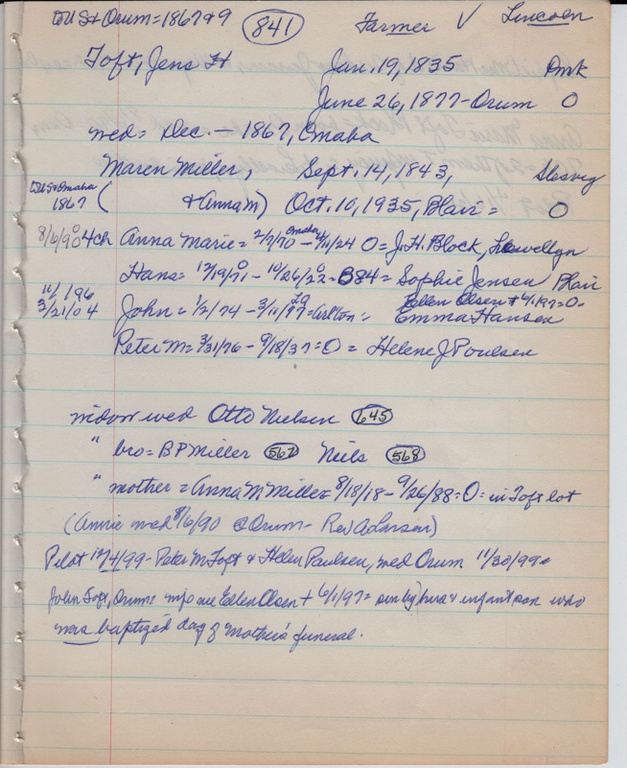 US + Orum = 1867 & 9 (841) Farmer V Lincoln
Toft, Jens H Jan. 19, 1835 Dmk
June 26, 1877 - Orum O
wed = Dec. - 1867, Omaha
Maren Miller, Sept. 14, 1843, Slesvig
US & Omaha
1867 ( & Anna M) Oct. 10, 1935, Blair = O
8/6/90 O 4ch Anna Marie = 2/7/70 Omaha - /11/24 O = J. H. Block, Llewellyn
Hans = 12/19/71 O - 10/26/22 O = B84 = Sophie Jensen Blair
11/ /96 Ellen Olsen + 6/1/97 = O =
3/21/04 John = 1/2/74 - 3/11/ = Arlton = Emma Hansen
Peter M = 3/31/76 - 9/18/37 = O = Helene J Poulsen
widow wed Otto Nielsen (645)
" bro = B P Miller (567) Neils (568)
" mother = Anna M Miller = 8/18/18 - 9/26/88 = O = in Toft lot
(Annie wed 8/6/90 @ Orum - Rev A Larsen)
Pilot 12/4/99 - Peter M Toft & Helen Paulsen, wed Orum 11/30/99 =
John Toft, Orum = wife nee Ellen Olsen + 6/1/97 = survby) hus & infant son who
was baptized day of mother's funeral.